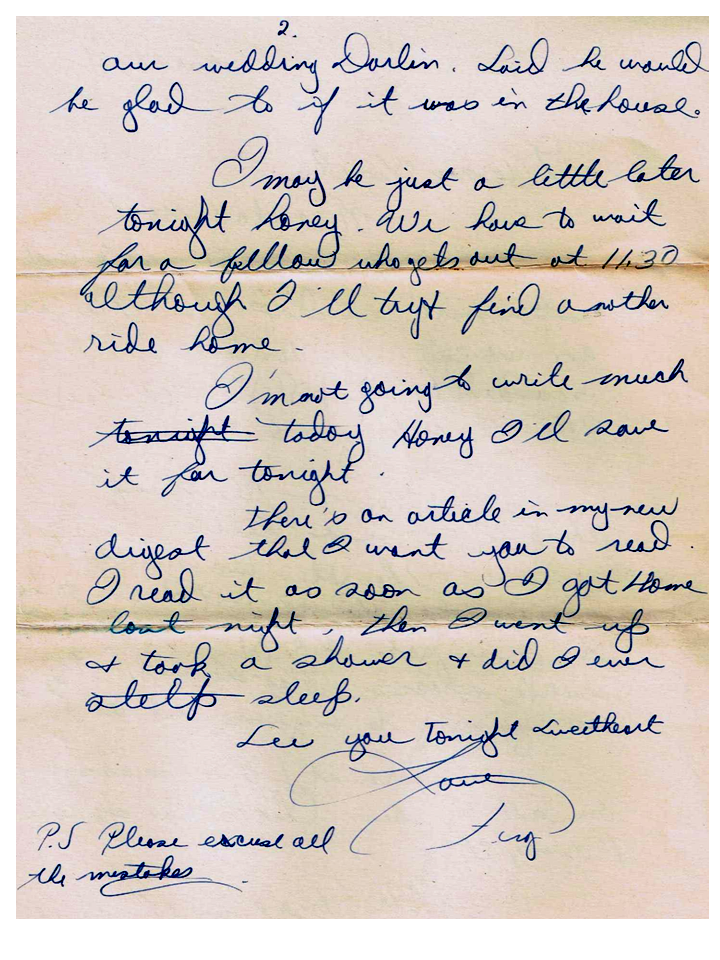 2.
our wedding Darlin. Said he would
be glad to if it was in the house.
I may be just a little later
tonight honey. We have to wait
for a felllow who gets out at 11:30
although I'll try & find another
ride home.
I'm not going to write much
tonight today Honey I'll save
it for tonight.
There's an article in my new
digest that I want you to read.
I read it as soon as I got Home
last night, then I went up
& took a shower & did I ever
slelp sleep.
See you Tonight Sweetheart
Love
P.S Please excuse all
the mistakes